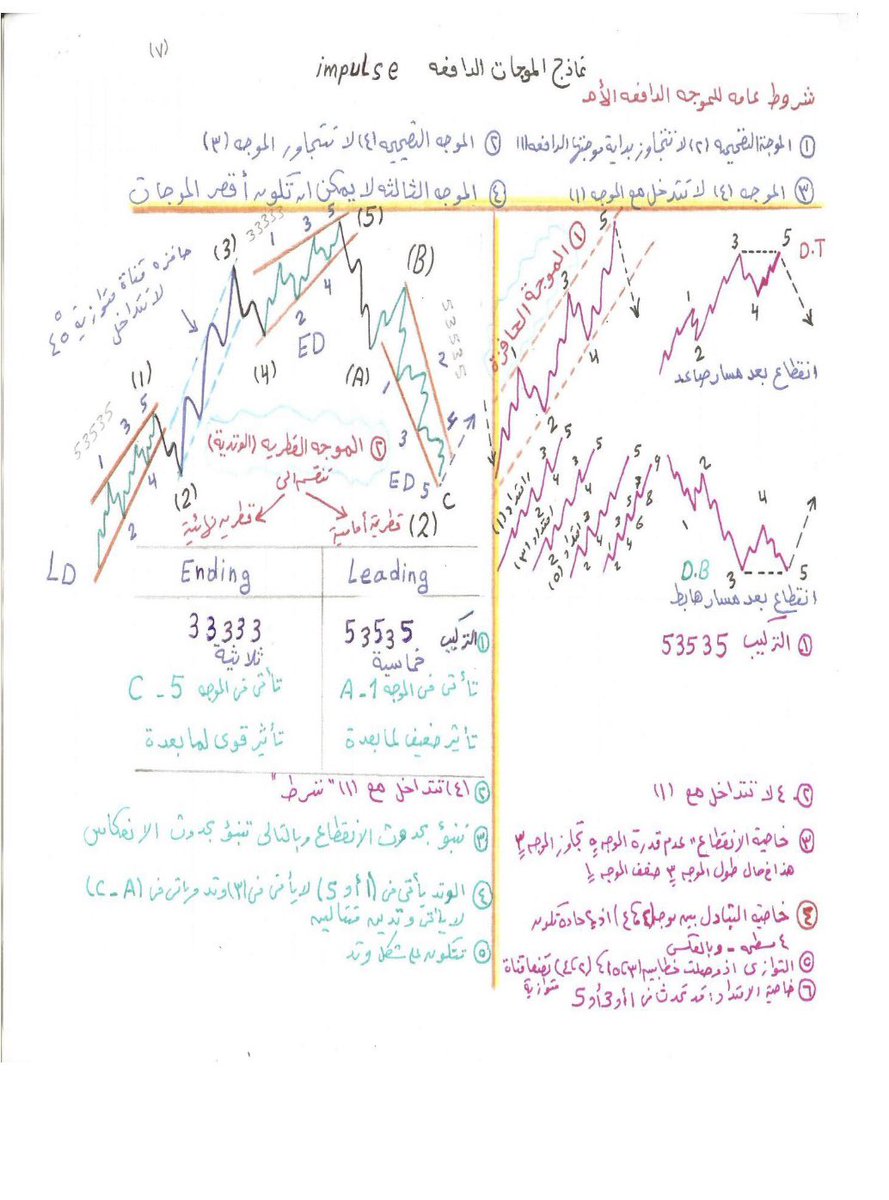 (٧)
نماذج الموجات الدافعه impulse
شروط عامه للموجه الدافعه الأم
① الموجة التصحيحيه (٢) لا تتجاوز بداية موجتها الدافعه (١)
② الموجه التصحيحيه (٤) لا تتجاوز الموجه (٣)
③ الموجه (٤) لا تتدخل مع الموجه (١)
④ الموجه الثالثه لا يمكن ان تكون أقصر الموجات
حافزه قناة متوازية ٤٥°
لا تتداخل
53535
33333
53535
(1) (2) (3) (4) (5)
(A) (B) C
1 2 3 4 5
LD
ED
ED
① الموجة الحافزة
1 2 3 4 5
امتداد (١)
امتداد (٣)
امتداد (٥)
D.T
3 5
1 2 4
انقطاع بعد مسار صاعد
D.B
1 2 3 4 5
انقطاع بعد مسار هابط
② الموجه القطريه (الوتدية)
تنقسم الى
قطرية أمامية
قطريه نهائية
(2)
Ending Leading
① التركيب 53535 33333
خماسية ثلاثية
تأتى فى الموجه A - 1 تأتى فى الموجه C - 5
تأثير ضعيف لما بعدة تأثير قوى لما بعدة
② (٤) تتداخل مع (١) "شرط"
③ تنبؤ بحدوث الانقطاع وبالتالى تنبؤ بحدوث الانعكاس
④ الوتد يأتى فى (1 أو 5) لا يأتى فى (٣) وتد ويأتى فى (C - A)
لا يأتى وتدين متتاليين
⑤ تتكون على شكل وتد
① التركيب 53535
②- ٤ لا تتداخل مع (١)
③ خاصية الانقطاع "عدم قدرة الموجه ٥ تجاوز الموجه ٣
هذا فى حال طول الموجه ٣ ضعف الموجه ١
④ خاصية التبادل بين ٢ & ٤ اذ ٢ حادة تكون
٤ مسطحه - وبالعكس
⑤ التوازى اذ وصلت خطا بين (١،٣،٥) & (٢،٤) يصنعا قناة
متوازية
⑥ خاصية الامتداد: قد تحدث فى 1 أو 3 أو 5